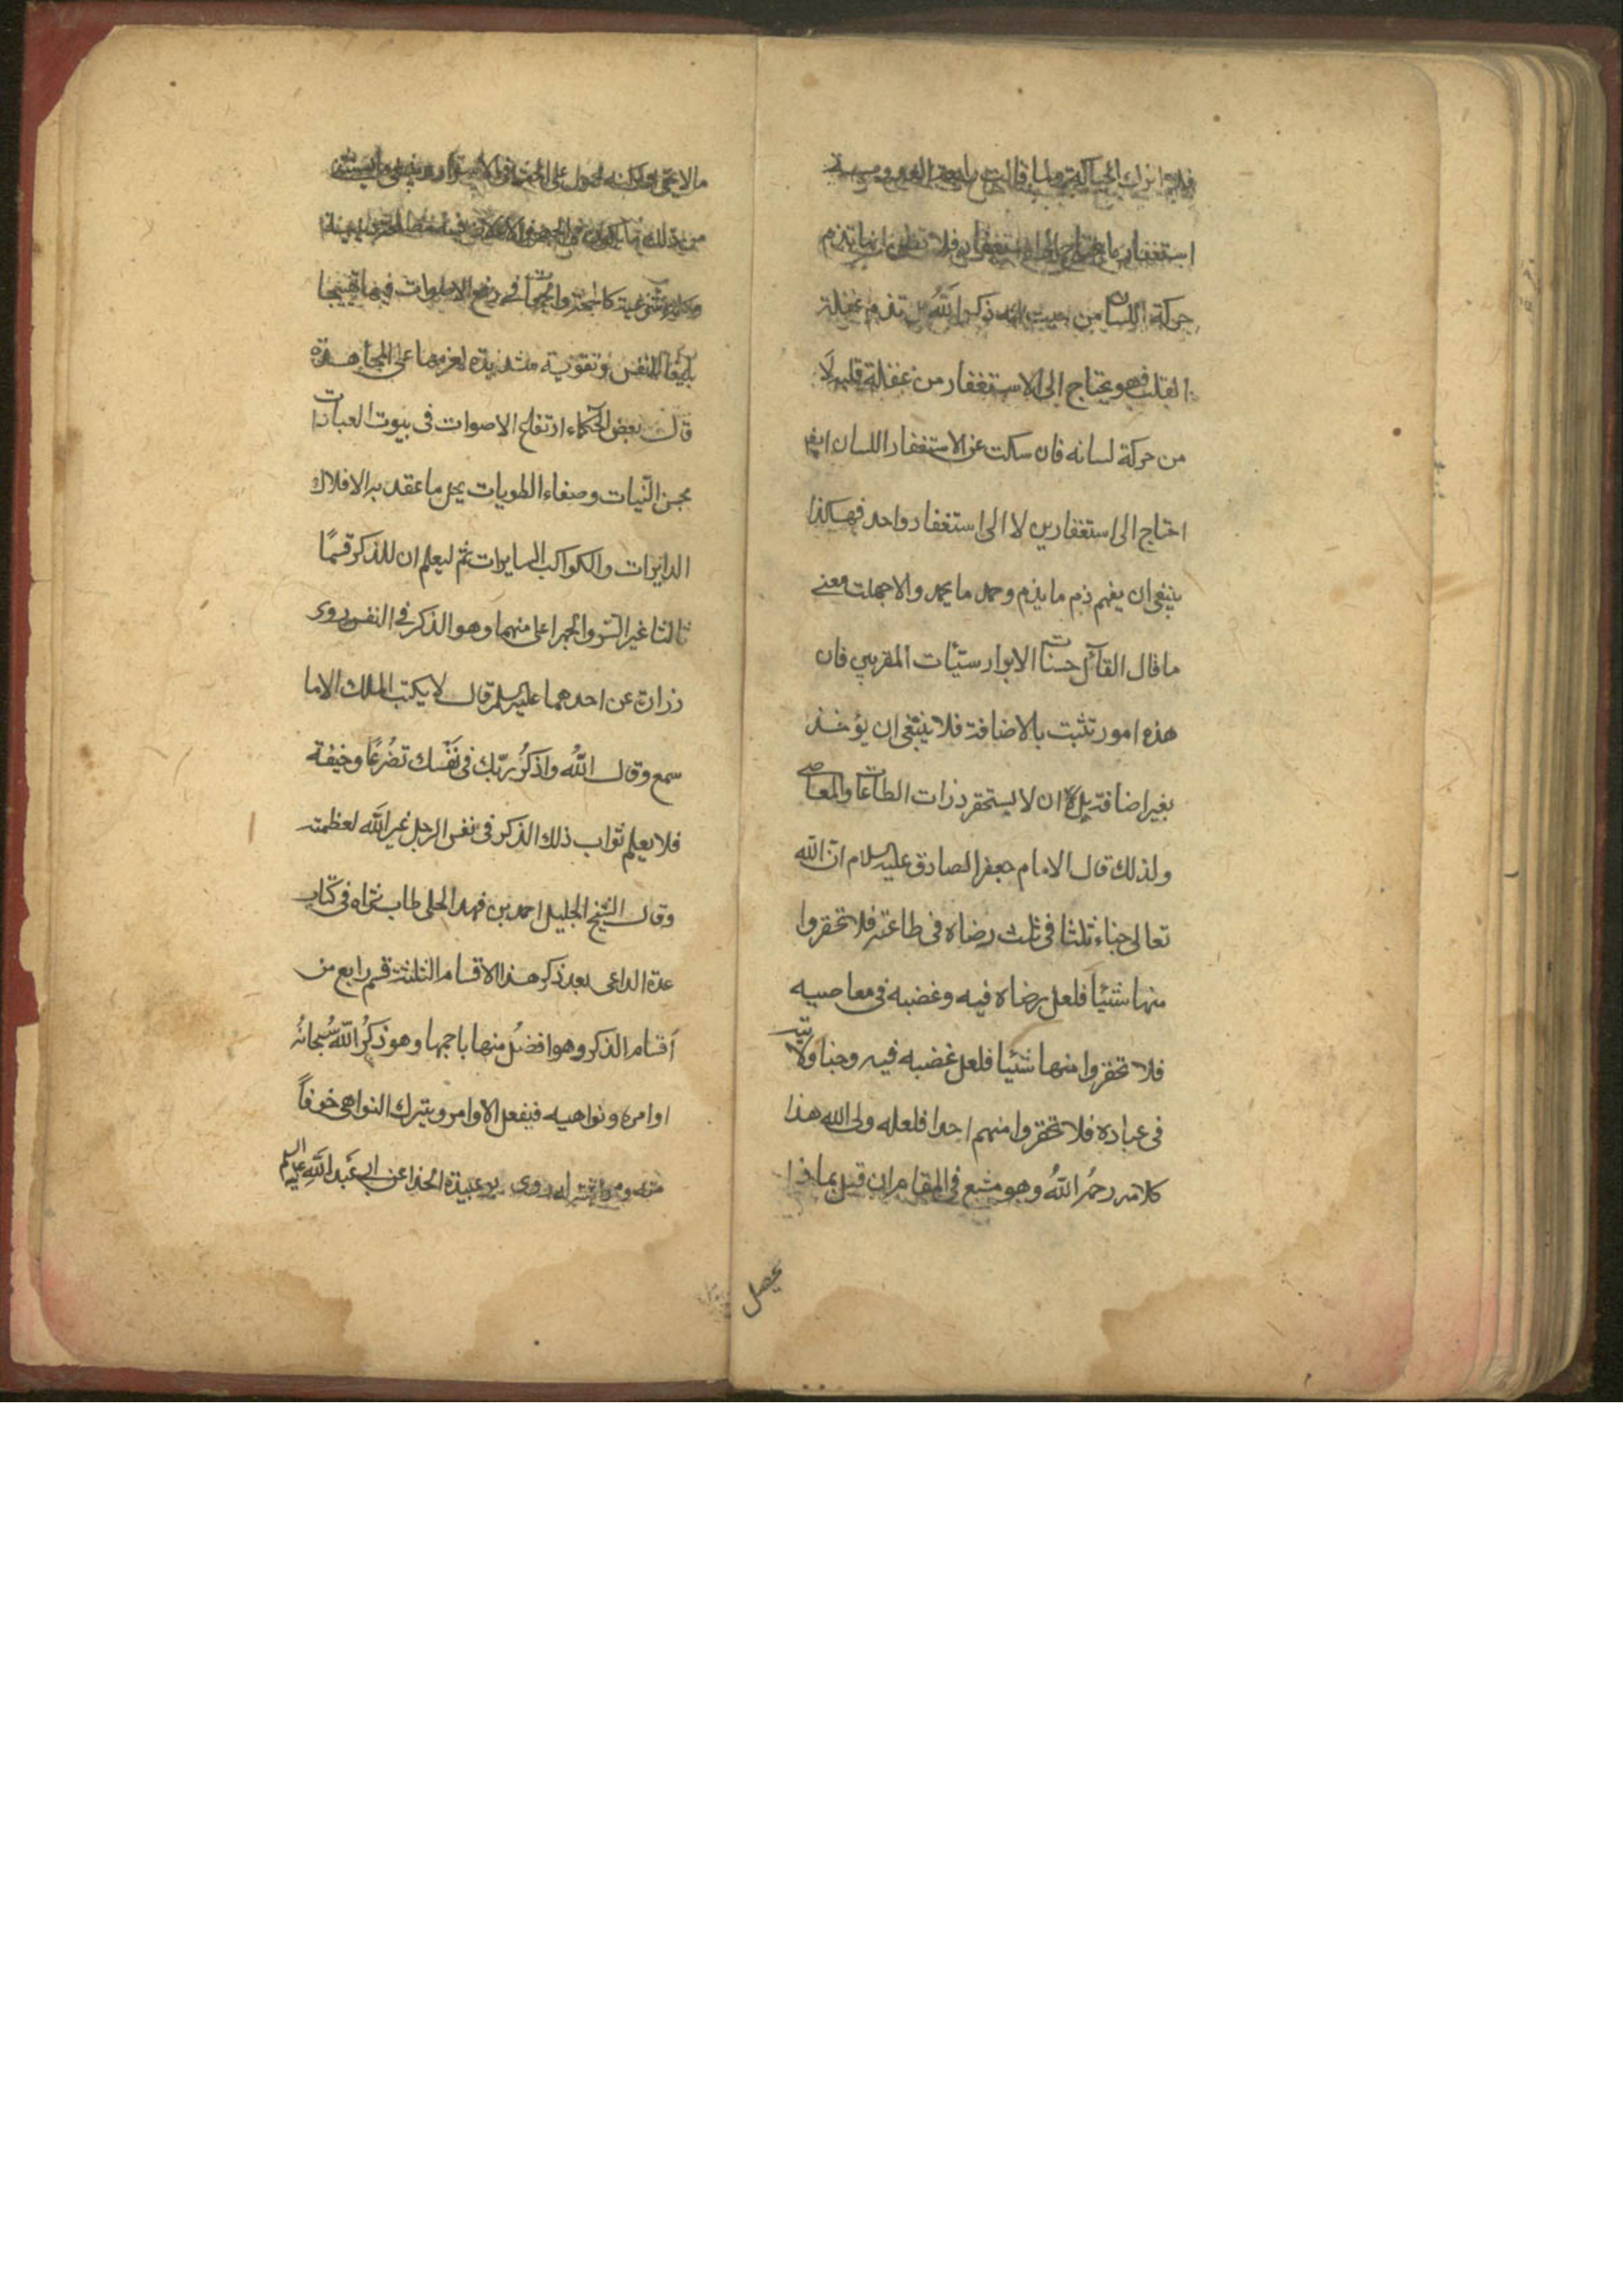 قالت رابعة العدوية
استغفارنا يحتاج الى استغفار فلا تظن انها تذم
حركة اللسان من حيث انه ذكر الله بل تذم غفلة
القلب فهو يحتاج الى الاستغفار من غفلة قلبه لا
من حركة لسانه فان سكت عن الاستغفار اللسان ايضا
احتاج الى استغفارين لا الى استغفار واحد فهكذا
ينبغى ان يفهم ذم ما يذم وحمد ما يحمد والا جهلت معنى
ما قال القائل حسنات الابرار سيئات المقربين فان
هذه امور تثبت بالاضافة فلا ينبغى ان يؤخذ
بغير اضافة بل ان لا يستحقر ذرات الطاعات والمعاصى
ولذلك قال الامام جعفر الصادق عليه السلام ان الله
تعالى خباء ثلثا فى ثلث رضاه فى طاعته فلا تحقروا
منها شئيا فلعل رضاه فيه وغضبه فى معاصيه
فلا تحقروا منها شئيا فلعل غضبه فيه وخبا ولايته
فى عباده فلا تحقروا منهم احدا فلعله ولى الله هذا
كلامه رحمه الله وهو مشبع فى المقام ان قيل بماذا
يحصل
من ذلك
فى رفع الاصوات فيها تهييجا
بليغا للنفس وتقوية شديدة لعزمها على المجاهدة
قال بعض الحكماء ارتفاع الاصوات فى بيوت العبادات
بحسن النيات وصفاء الطويات يحل ما عقد به الافلاك
الدايرات والكواكب السايرات ثم ليعلم ان للذكر قسمًا
ثالثا غير السر والجهر اعلى منهما وهو الذكر فى النفس روى
زرارة عن احدهما عليه السلم قال لا يكتب الملك الا ما
سمع وقال الله واذكر ربك فى نفسك تضرعًا وخيفة
فلا يعلم ثواب ذلك الذكر فى نفس الرجل غير الله لعظمته
وقال الشيخ الجليل احمد بن فهد الحلى طاب ثراه فى كتاب
عدة الداعى بعد ذكر هذا الاقسام الثلثة قسم رابع من
اقسام الذكر وهو افضل منها باجمعها وهو ذكر الله سبحانه
اوامره ونواهيه فيفعل الاوامر ويترك النواهى خوفاً
عبيدة الحذا عن ابى عبد الله عليه السلم